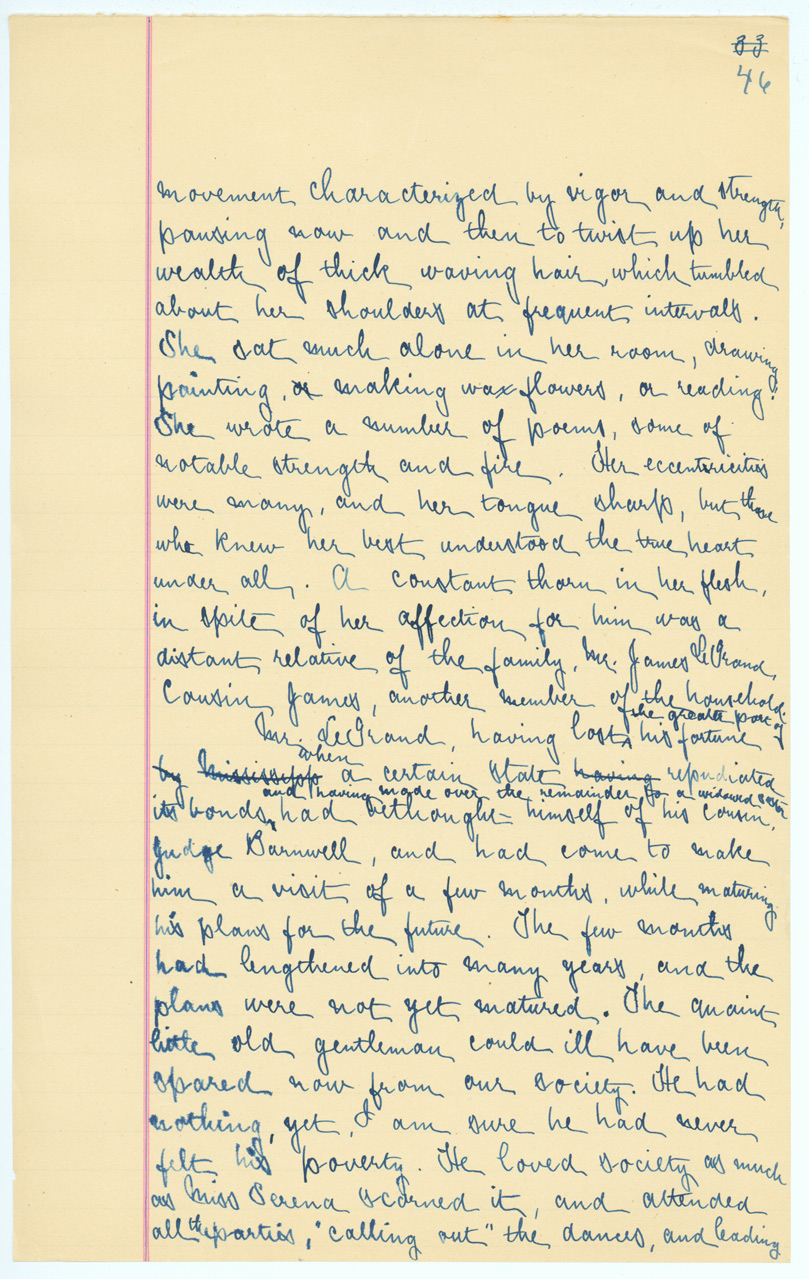 33
46
movement characterized by vigor and strength,
pausing now and then to twist up her
wealth of thick waving hair, which tumbled
about her shoulders at frequent intervals.
She sat much alone in her room, drawing,
painting, or making wax flowers, or reading.
She wrote a number of poems, some of
notable strength and fire. Her eccentricities
were many, and her tongue sharp, but those
who knew her best understood the true heart
under all. A constant thorn in her flesh,
in spite of her affection for him was a
distant relative of the family, Mr. James LeGrand,
Cousin James, another member of the household.
the greater part of
Mr. LeGrand, having lost his fortune
when
by Mississipp a certain state having repudiated
and having made over the remainder to a widowed sister
its bonds, had bethought himself of his cousin,
Judge Barnwell, and had come to make
him a visit of a few months, while maturing
his plans for the future. The few months
had lengthened into many years, and the
plans were not yet matured. The quaint
little old gentleman could ill have been
spared now from our society. He had
nothing, yet, I am sure he had never
felt his poverty. He loved society as much
as Miss Serena scorned it, and attended
all the parties, "calling out" the dances, and leading